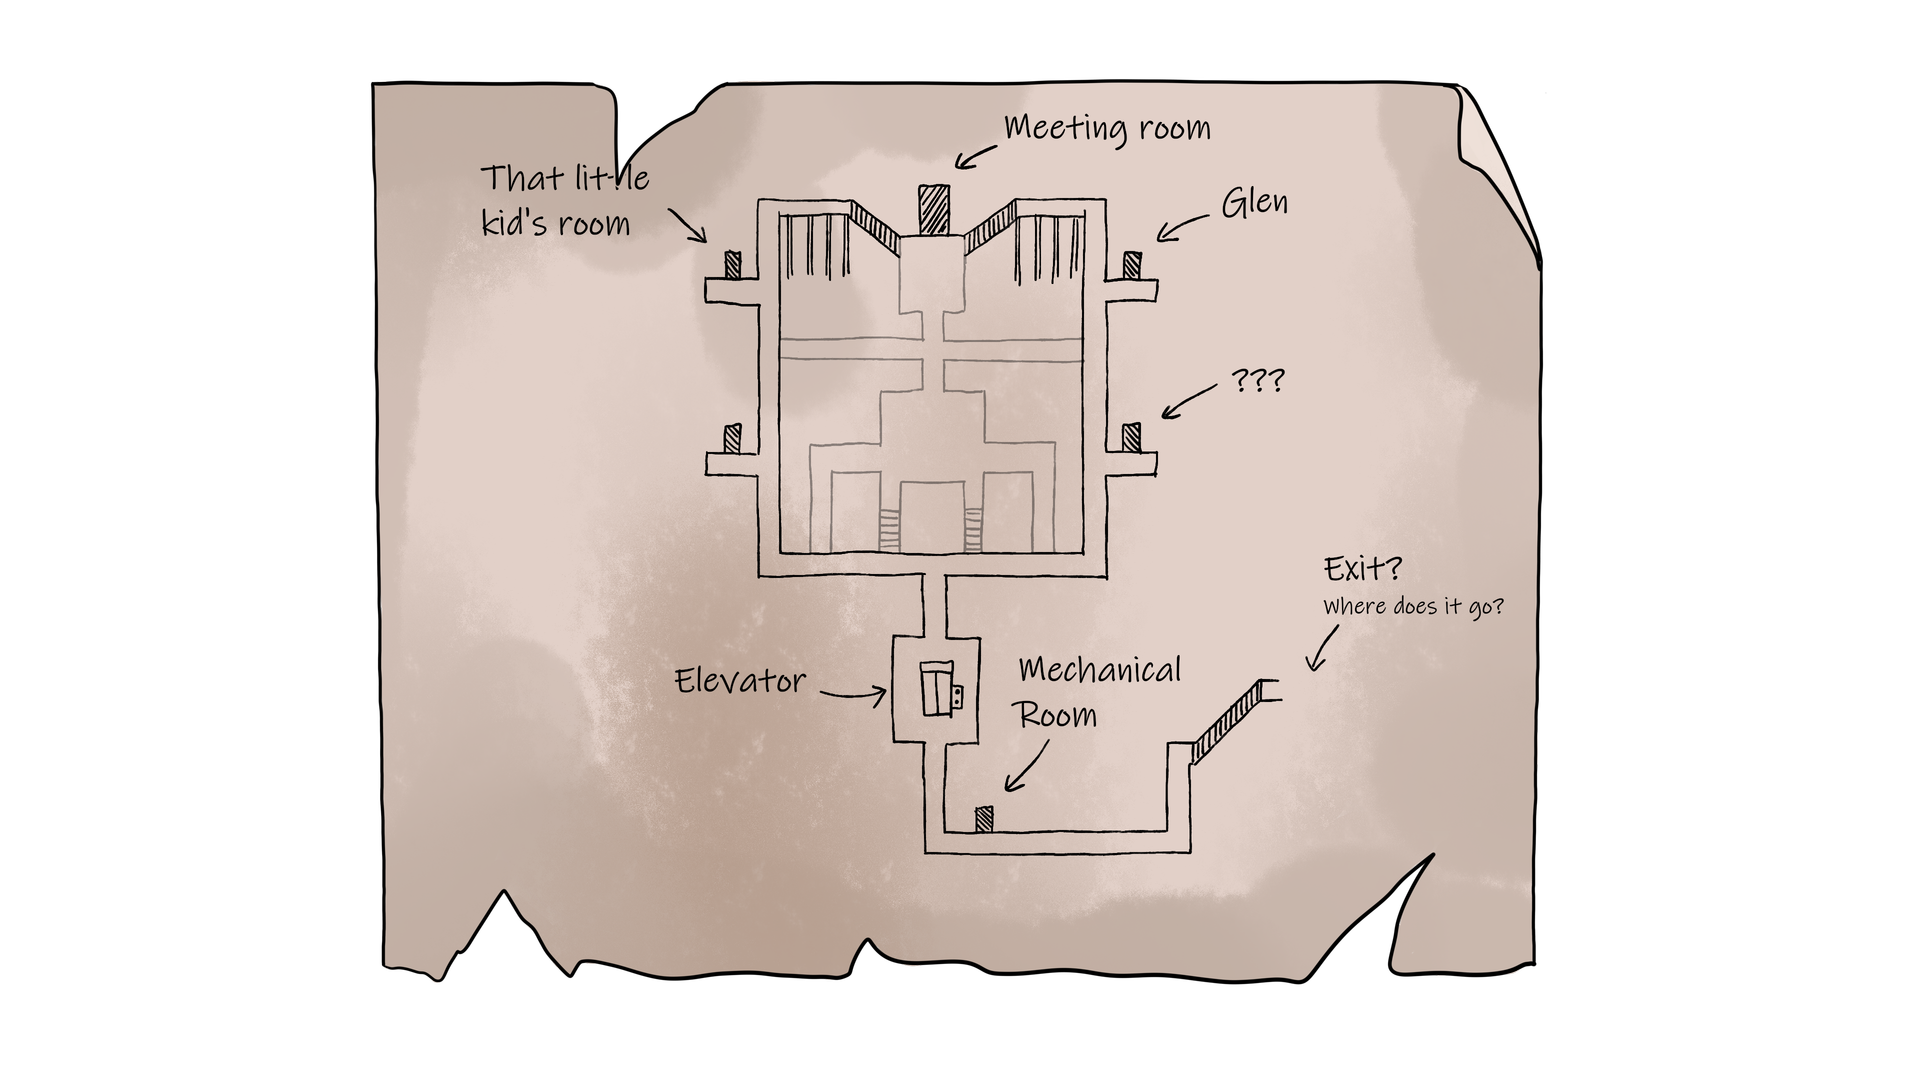 Meeting room
That little
kid's room
Glen
???
Exit?
Where does it go?
Elevator
Mechanical
Room